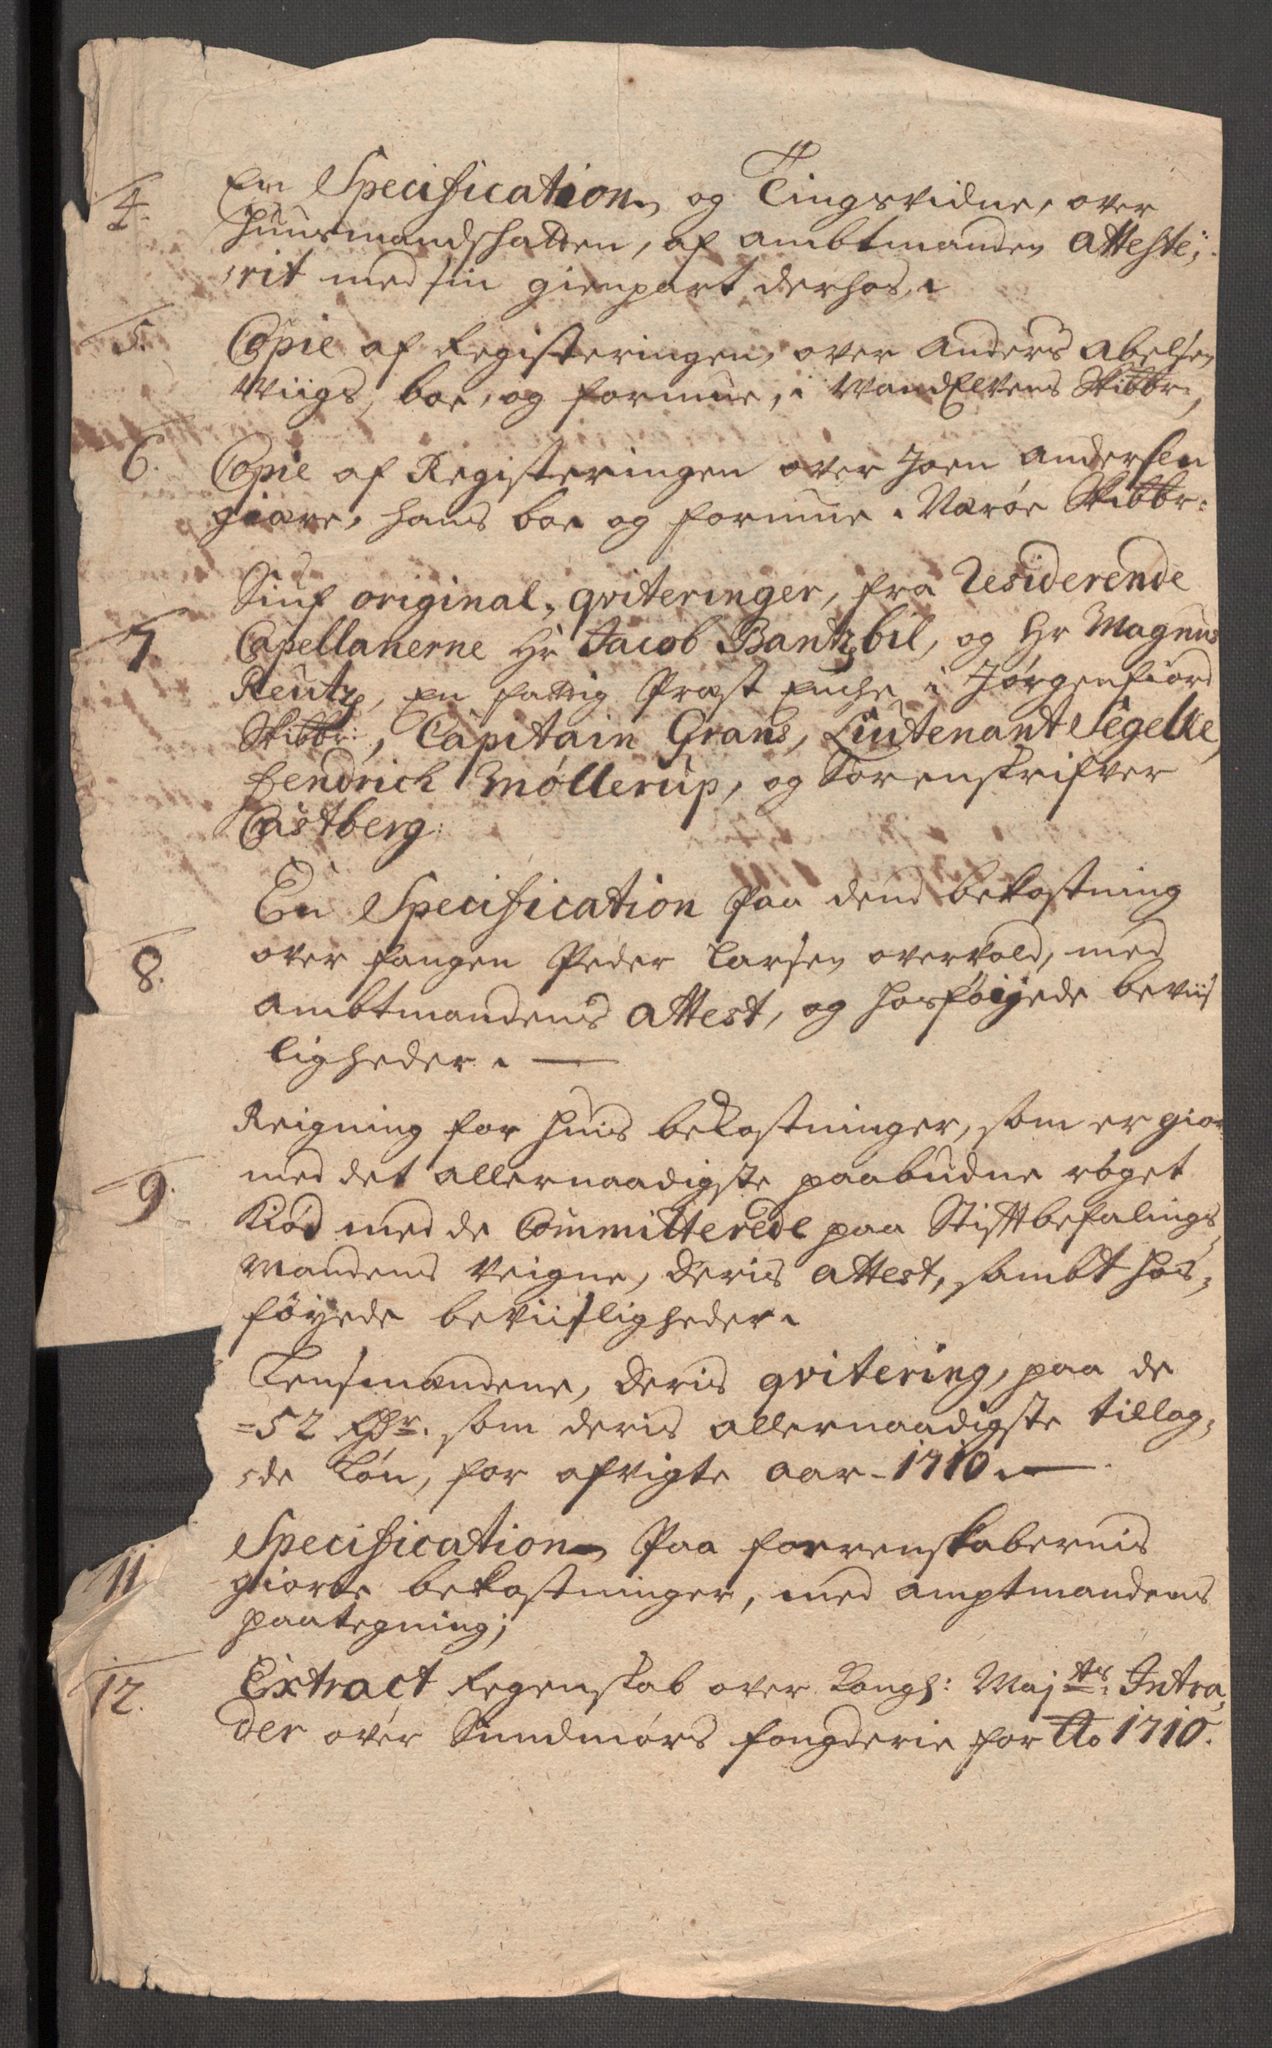 4. En Specification og Tingsvidne, over
huusmandschatten, af ambtmanden atteste¡
rit med sin gienpart derhos.
5. Copie af Registeringen, over Anders Abelsen
Wiigs boe, og formue, i WandElvens Skibbr:,
6. Copie af Registeringen over Joen Andersen
giære, hans boe og formue i Varøe Skibbr:
Siuf original, qviteringer, fra Residerende
7 Capellanerne Hr Jacob Bantzbil, og Hr Magnus
Reutz, En fattig Præst Enche i Jørgenfiord
Skibbr:, Capitain Grans, Liutenant Segelke,
Hendrich Møllerup, og Sorenskrifver
Castberg:
En Specification Paa dend bekostning
8. over fangen Peder Larsen overvold, med
Ambtmandens Attest, og hosføiyede beviis
ligheder. —
Reigning for huis bekostninger, som er gior
9. med det allernaadigste paabudne røget
Kiød med de Committerede paa Stiftbefalings
mandens Veigne, deris attest, sambt hos,
føyede beviisligheder.
Lensmændene, deris qvitering, paa de
=52 Rdr. som deris allernaadigste tillag,
de Løn, for afvigte aar - 1710 —
11 Specification Paa forrenskabernis
giorte bekostninger, med amptmandens
paategning;
12. Extract Regenskab over Kongl: Majts: Intra,
der over Sundmørs fougderie for Ao 1710.